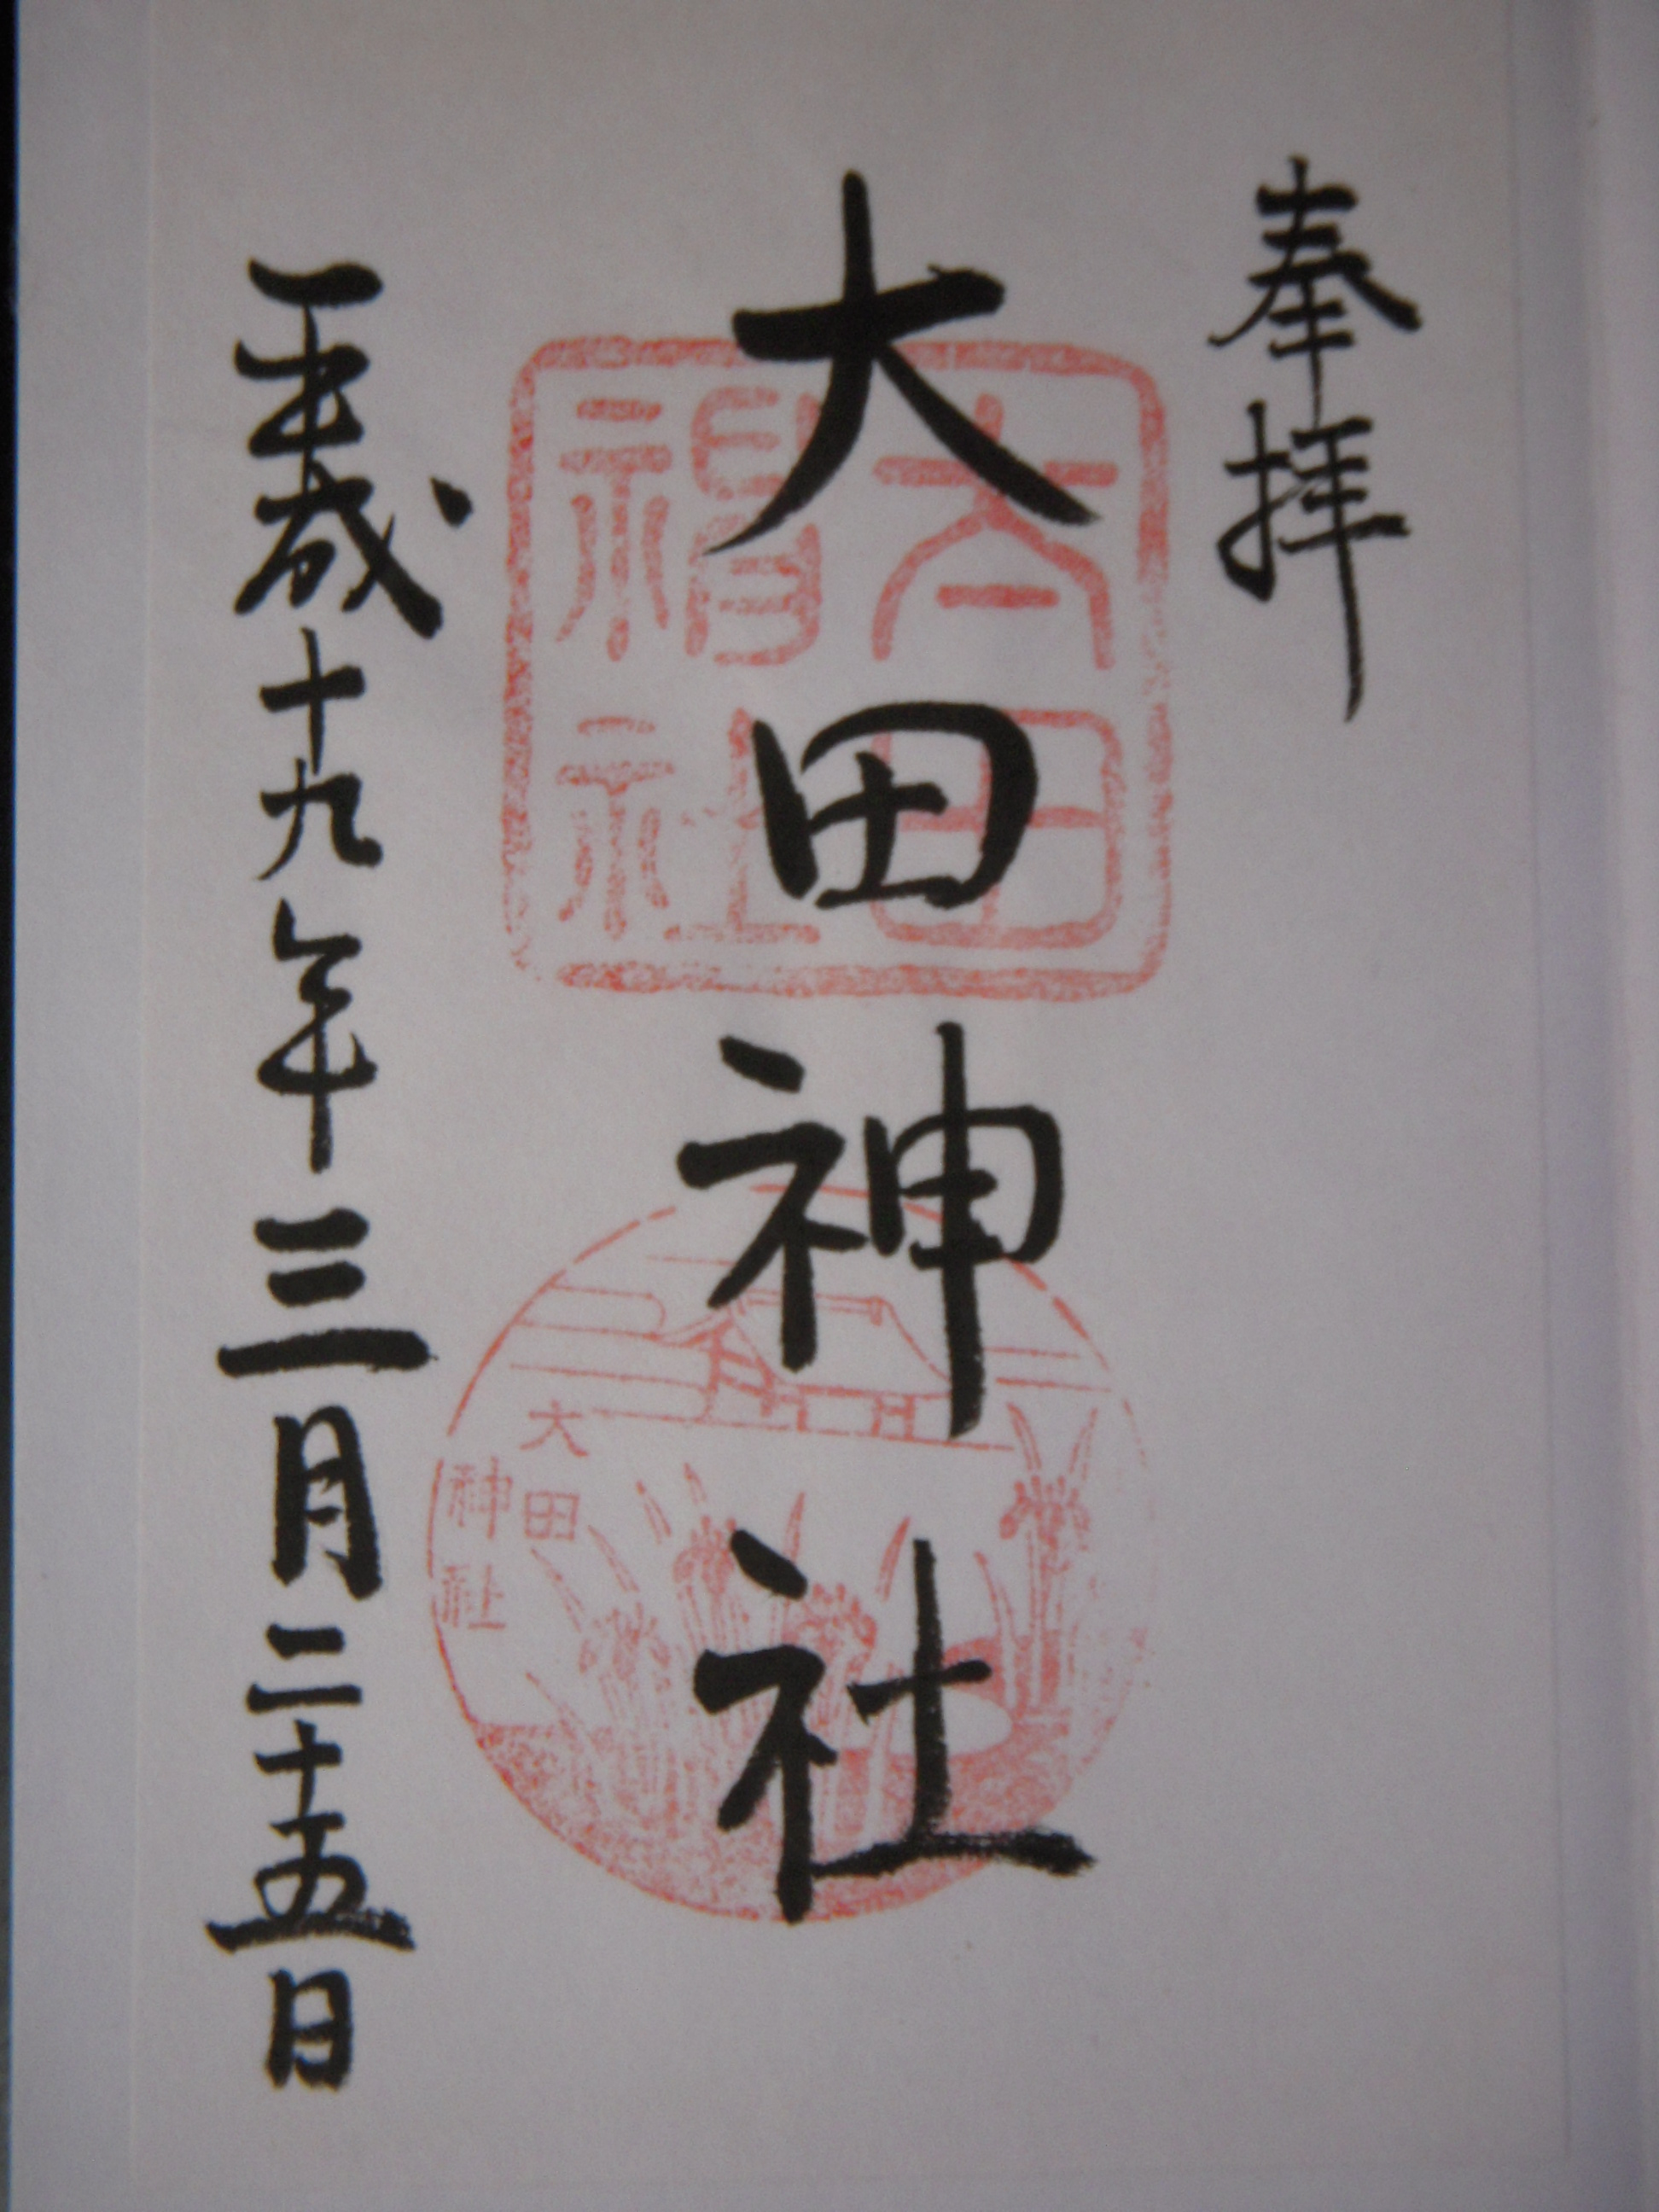 奉拝
大田神社
太田
神社
大田
神社
平成十九年三月二十五日